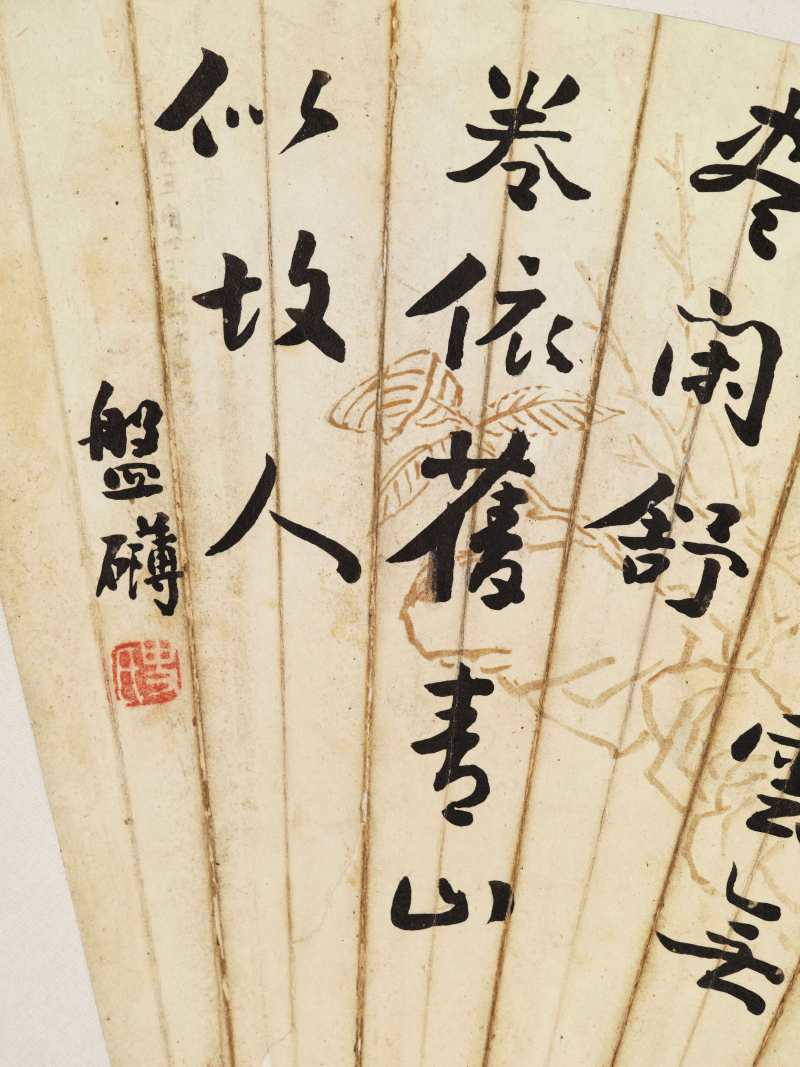 雲無
閑舒
卷依舊青山
似故人
盤礴